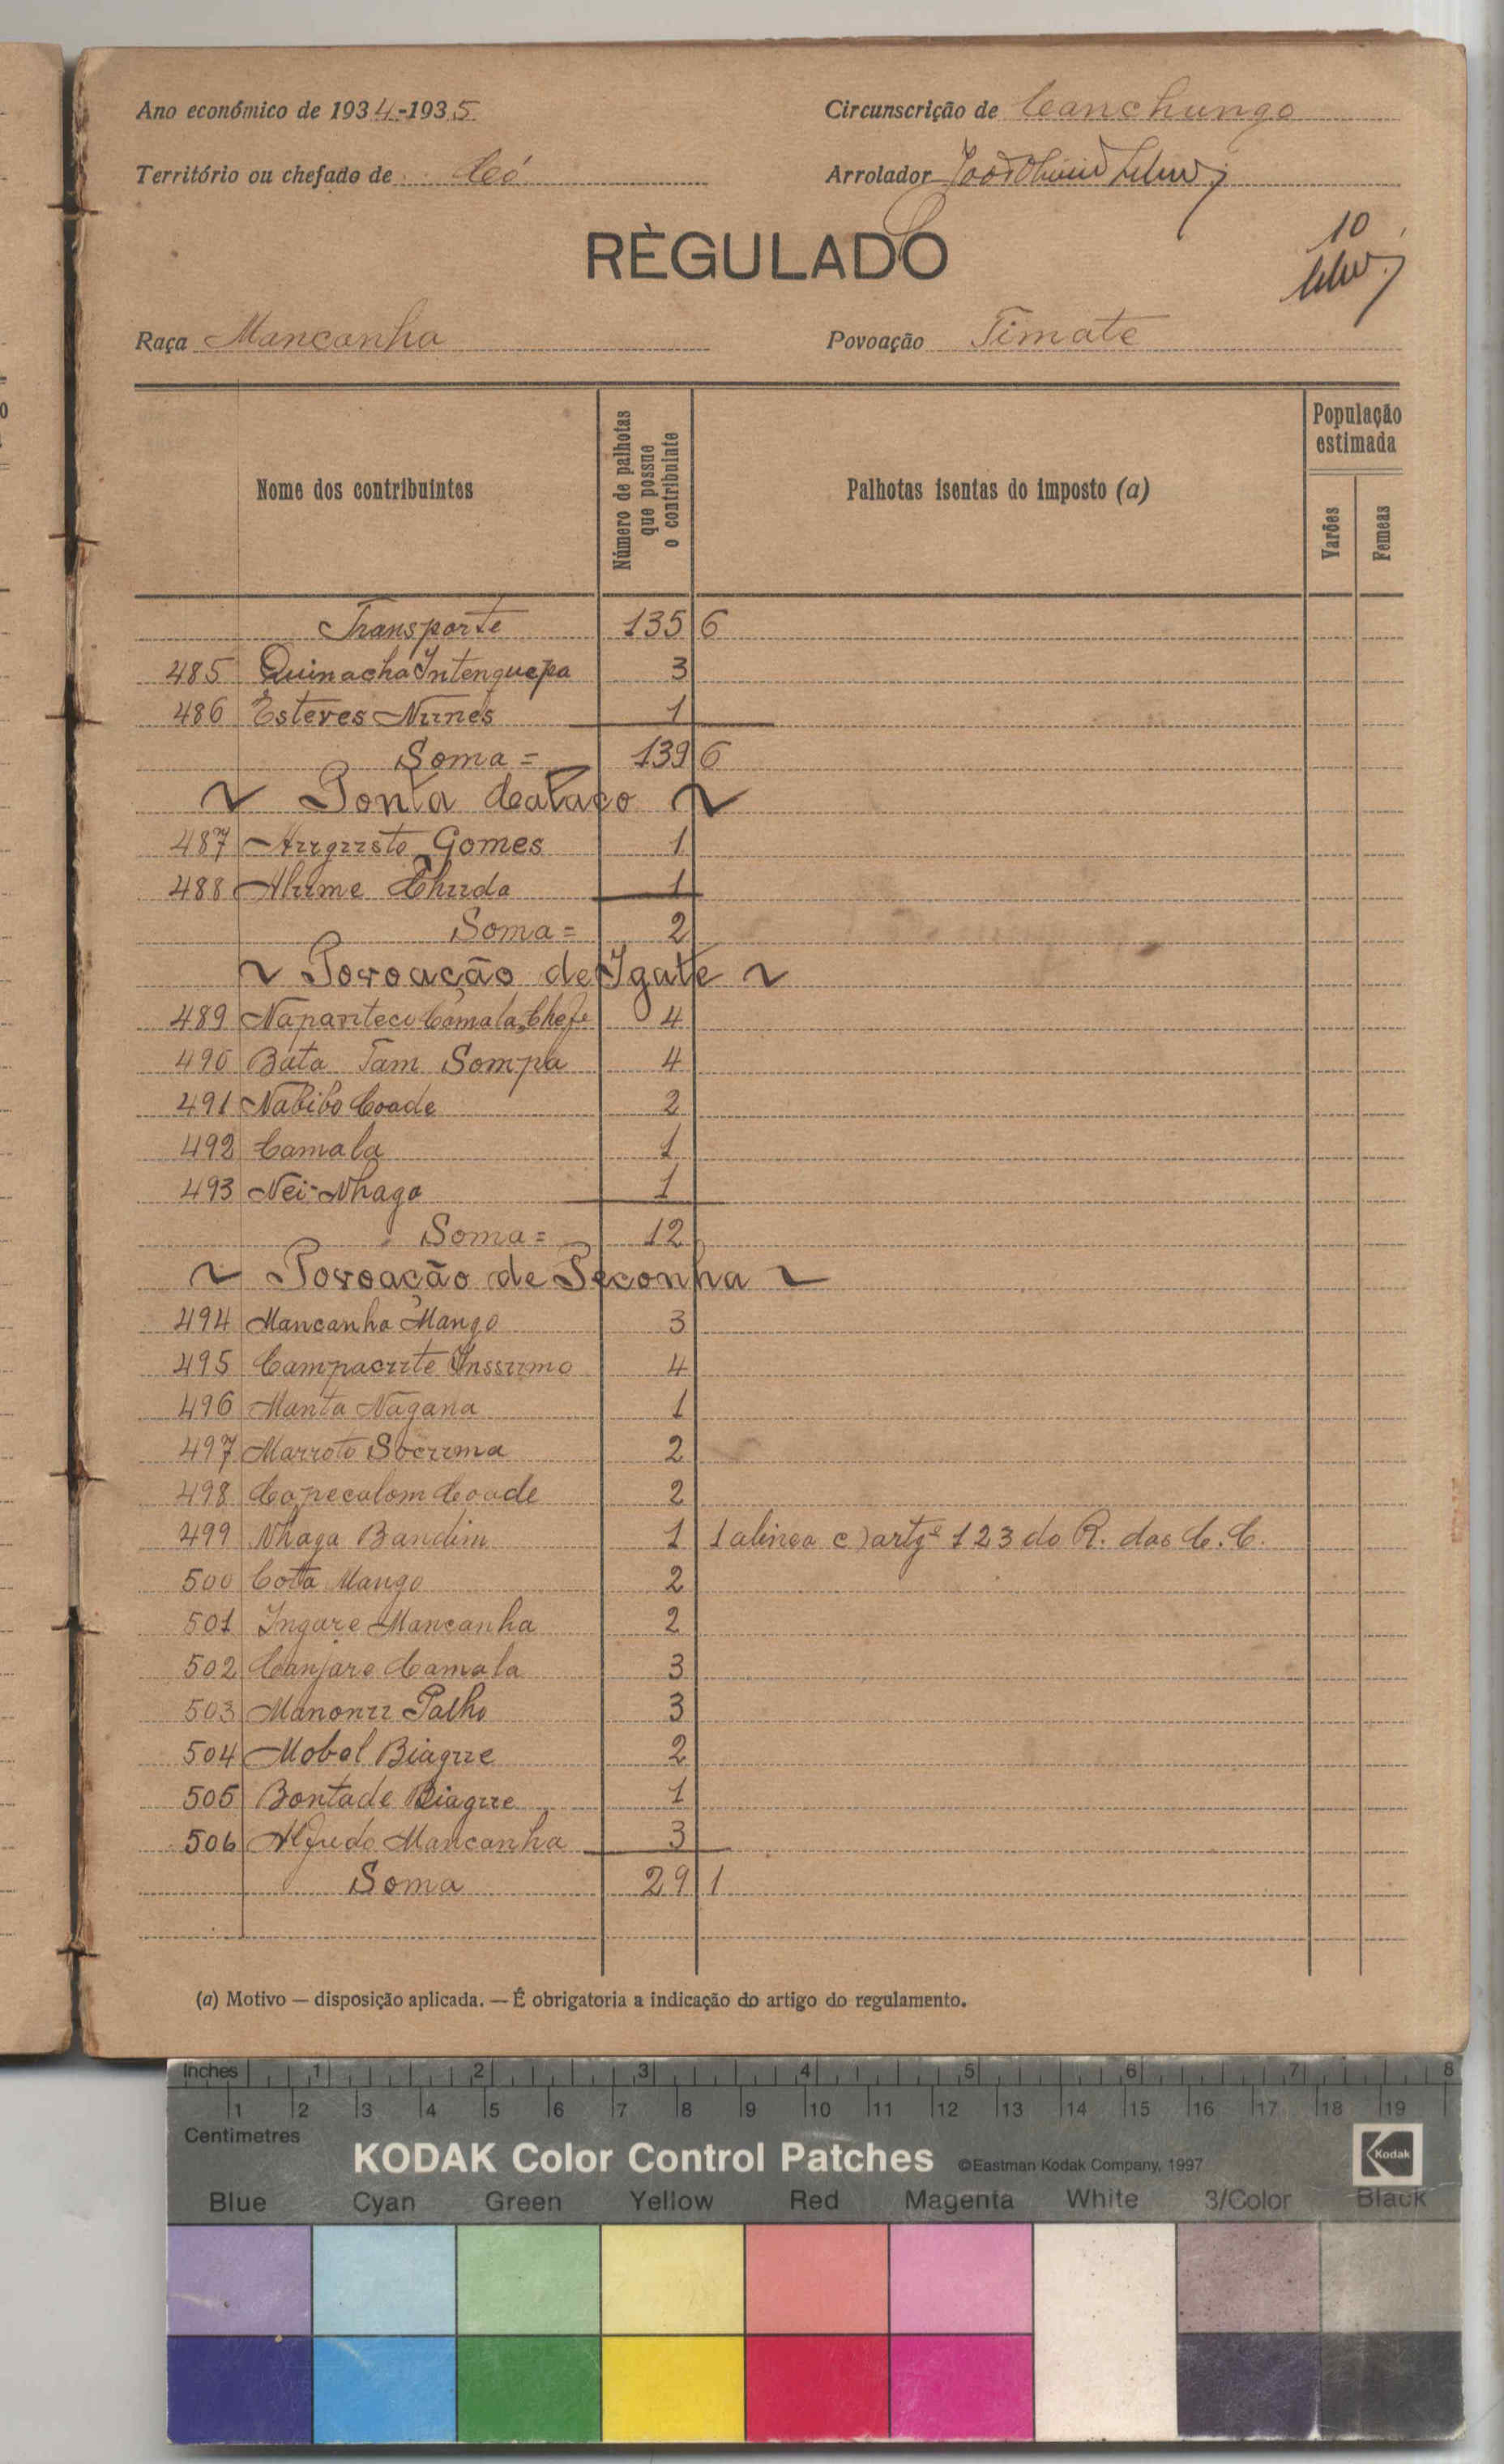 Ano económico de 1934-1935
Circunscrição de Canchungo
Território ou chefado de Có
Arrolador
RÈGULADO
10
Raça Mancanha
Povoação Timate
Nome dos contribuintes
Número de palhotas que possue o contribuinte
Palhotas isentas do imposto (a)
População estimada
Varões
Femeas
Transporte 135 6
485 Quinacha Intenguepa 3
486 Esteves Nunes 1
Soma = 139 6
~ Ponta Calaco ~
487 Augusto Gomes 1
488 Alume Chuda 1
Soma = 2
~ Povoação de Igate ~
489 Napanteco Camala, Chefe 4
490 Bata Tam Sompa 4
491 Nabibo Coade 2
492 Camala 1
493 Nei-Nhaga 1
Soma = 12
~ Povoação de Peconha ~
494 Mancanha Mango 3
495 Campacute Inssumo 4
496 Manta Nagana 1
497 Marroto Socuma 2
498 Capecalom Coade 2
499 Nhaga Bandim 1 1 alinea c) artgº 123 do R. das C. C.
500 Cota Mango 2
501 Ingare Mancanha 2
502 Canjare Camala 3
503 Manonu Palho 3
504 Mobol Biague 2
505 Bontade Biague 1
506 Alfredo Mancanha 3
Soma 29 1
(a) Motivo — disposição aplicada. — É obrigatoria a indicação do artigo do regulamento.
Inches 1 2 3 4 5 6 7 8
1 2 3 4 5 6 7 8 9 10 11 12 13 14 15 16 17 18 19
Centimetres
KODAK Color Control Patches ©Eastman Kodak Company, 1997 Kodak
Blue Cyan Green Yellow Red Magenta White 3/Color Black